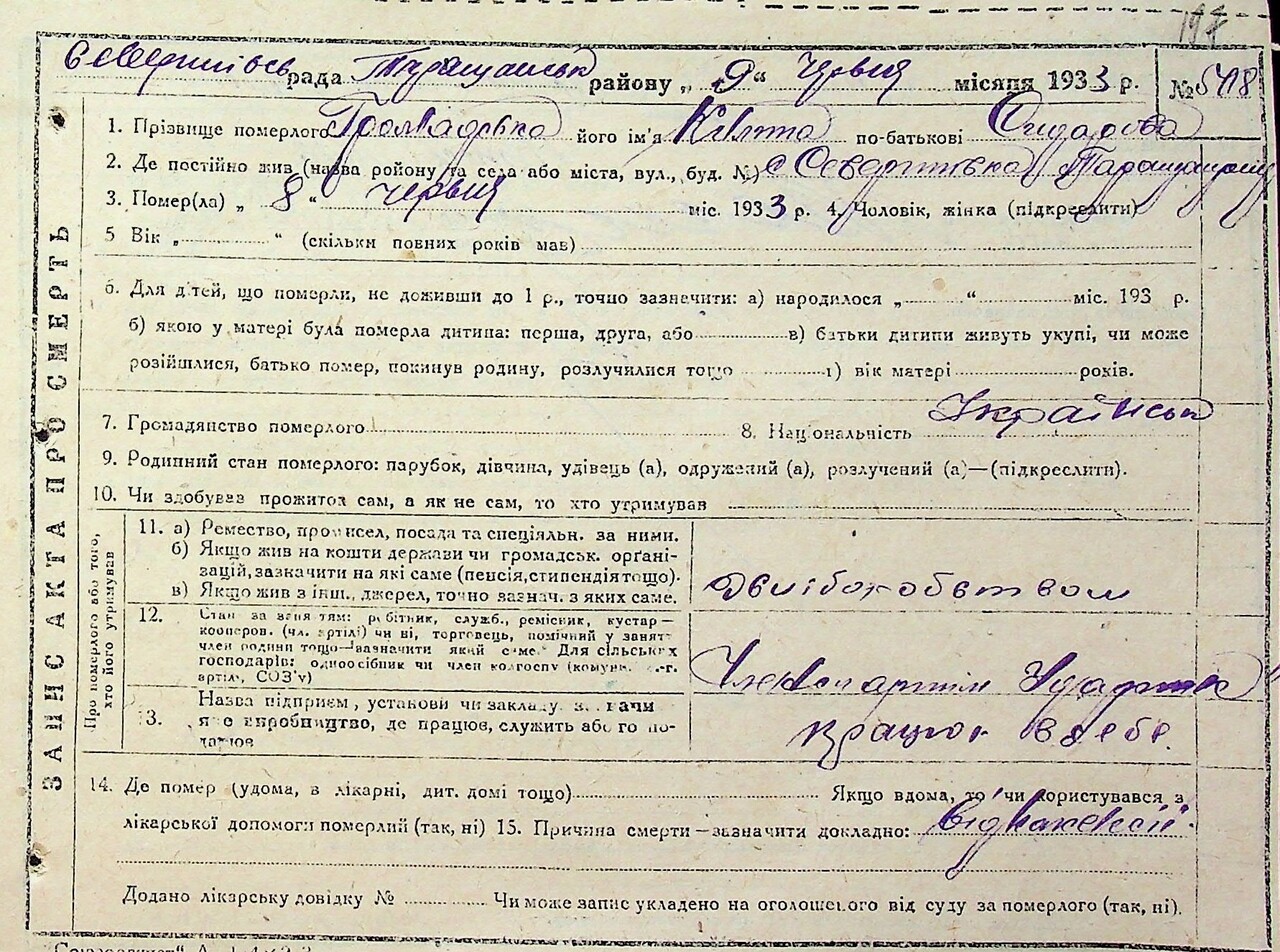 197
рада Таращанськ району „ 9 “ Червня місяця 1933 р. №
1. Прізвище померлого Громадська його ім'я по-батькові Сидорова
2. Де постійно жив (назва району та села або міста, вул., буд. №) с
3. Помер(ла) „ 8 “ червня міс. 1933 р. 4. Чоловік, жінка (підкреслити)
5 Вік „ “ (скільки повних років мав)
6. Для дітей, що померли, не доживши до 1 р., точно зазначити: а) народилося „ “ міс. 193 р.
б) якою у матері була померла дитина: перша, друга, або в) батьки дитини живуть укупі, чи може
розійшлися, батько помер, покинув родину, розлучилися тощо г) вік матері років.
7. Громадянство померлого 8. Національність Українськ
9. Родинний стан померлого: парубок, дівчина, удівець (а), одружений (а), розлучений (а)—(підкреслити).
10. Чи здобував прожиток сам, а як не сам, то хто утримував
ЗАПИС АКТА ПРО СМЕРТЬ
Про померлого або того, хто його утримував
11. а) Ремество, промисел, посада та спеціяльн. за ними.
б) Якщо жив на кошти держави чи громадськ. орґані-
зацій, зазначити на які саме (пенсія, стипендія тощо).
в) Якщо жив з інш., джерел, точно зазнач. з яких саме.
12. Стан за заняттям: робітник, служб., ремісник, кустар—
кооперов. (чл. артілі) чи ні, торговець, помічний у занят-
член родини тощо—зазначити який саме. Для сільських
господарів: одноосібник чи член колгоспу (комуни, с.-г.
артілі, СОЗ'у)
13. Назва підприєм, установи чи закладу, зазначи
яке виробництво, де працює, служить або го по-
працює в себе.
14. Де помер (удома, в лікарні, дит. домі тощо) Якщо вдома, то чи користувався з
лікарської допомоги померлий (так, ні) 15. Причина смерти—зазначити докладно: від
Додано лікарську довідку № Чи може запис укладено на оголошеного від суду за померлого (так, ні).